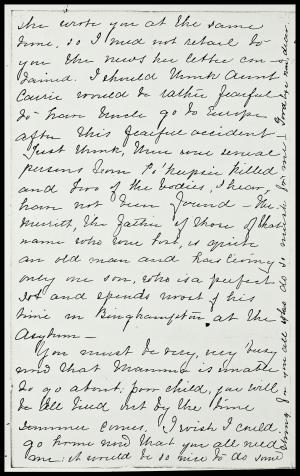 she wrote you at the same
time, so I need not retail to
you the news her letter con-
tained. I should think Aunt
Carrie would be rather fearful
to have Uncle go to Europe
after this fearful accident -
Just think, there were several
persons from Po'keepsie killed
and two of the bodies, I hear,
have not been found - Mr.
Merritt, the father of those of that
name who were lost, is quite
an old man and has living
only one son, who is a perfect
sot and spends most of his
time in Binghampton at the
Asylum -
You must be very, very busy
now that Mamma is unable
to go about; poor child, you will
be all tired out by the time
summer comes. I wish I could
go home now that you all need
me; it would be so nice to do some
thing for you all who do so much for me. Goodbye now, dear